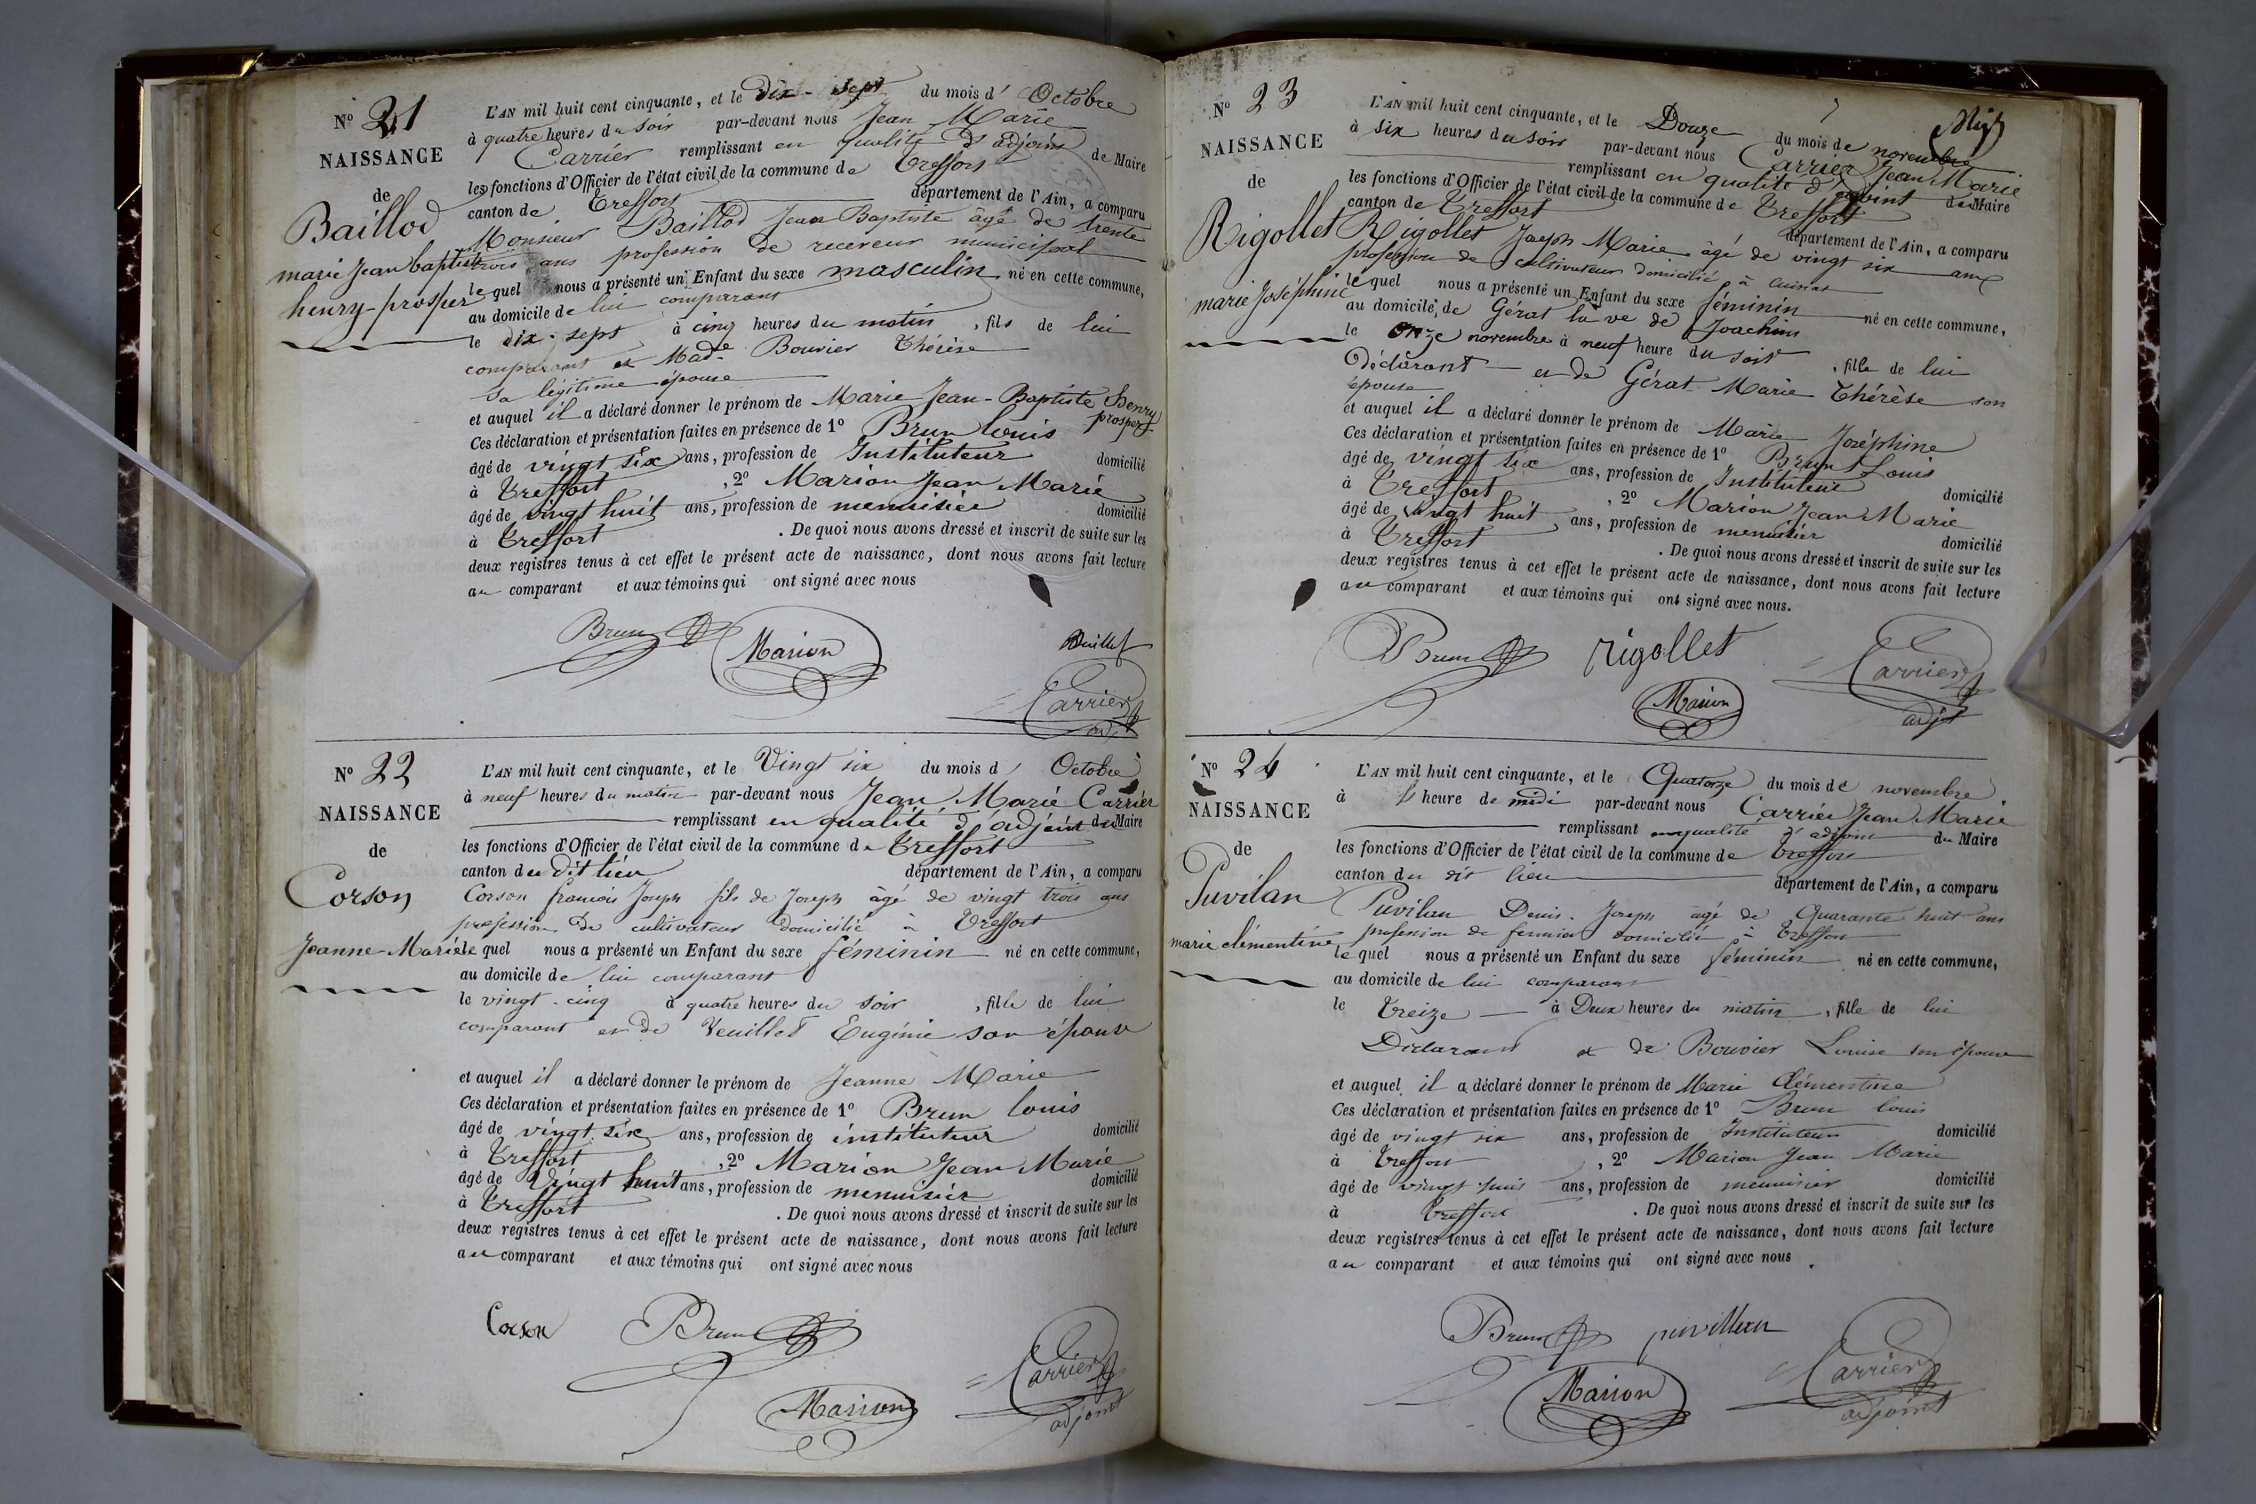 N° 21
NAISSANCE
de
Baillod
marie Jean baptiste
henry-prosper
L'AN mil huit cent cinquante, et le Dix-sept du mois d' Octobre
à quatre heures du soir par-devant nous Jean Marie
Carrier remplissant en qualité d'adjoint de Maire
les fonctions d'Officier de l'état civil de la commune de Treffort
canton de Treffort département de l'Ain, a comparu
Monsieur Baillod Jean Baptiste âgé de trente
trois ans profession de receveur municipal
le quel nous a présenté un Enfant du sexe masculin né en cette commune,
au domicile de lui comparant
le dix-sept à cinq heures du matin, fils de lui
comparant et Made Bouvier Thérèse
sa légitime épouse
et auquel il a déclaré donner le prénom de Marie Jean-Baptiste Henry
prosper
Ces déclaration et présentation faites en présence de 1° Brun Louis
âgé de vingt six ans, profession de Instituteur domicilié
à Treffort, 2° Marion Jean Marie
âgé de vingt huit ans, profession de menuisier domicilié
à Treffort. De quoi nous avons dressé et inscrit de suite sur les
deux registres tenus à cet effet le présent acte de naissance, dont nous avons fait lecture
au comparant et aux témoins qui ont signé avec nous
Brun Marion
Carrier
adjt
N° 22
NAISSANCE
de
Corson
Jeanne-Marie
L'AN mil huit cent cinquante, et le Vingt six du mois d' Octobre
à neuf heures du matin par-devant nous Jean Marie Carrier
remplissant en qualité d'adjoint du Maire
les fonctions d'Officier de l'état civil de la commune de Treffort
canton du dit lieu département de l'Ain, a comparu
Corson françois Joseph fils de Joseph âgé de vingt trois ans
profession de cultivateur domicilié à Treffort
le quel nous a présenté un Enfant du sexe féminin né en cette commune,
au domicile de lui comparant
le vingt-cinq à quatre heures du soir, fille de lui
comparant et de Veuillet Eugénie son épouse
et auquel il a déclaré donner le prénom de Jeanne Marie
Ces déclaration et présentation faites en présence de 1° Brun Louis
âgé de vingt six ans, profession de instituteur domicilié
à Treffort, 2° Marion Jean Marie
âgé de Vingt huit ans, profession de menuisier domicilié
à Treffort. De quoi nous avons dressé et inscrit de suite sur les
deux registres tenus à cet effet le présent acte de naissance, dont nous avons fait lecture
au comparant et aux témoins qui ont signé avec nous
Corson Brun
Carrier
Marion
adjoint
N° 23
NAISSANCE
de
Rigollet
marie Joséphine
L'AN mil huit cent cinquante, et le Douze du mois de novembre
à six heures du soir par-devant nous Carrier Jean Marie
remplissant en qualité d'adjoint du Maire
les fonctions d'Officier de l'état civil de la commune de Treffort
canton de Treffort département de l'Ain, a comparu
Rigollet Joseph Marie âgé de vingt six ans
profession de cultivateur domicilié à cuisiat
le quel nous a présenté un Enfant du sexe féminin né en cette commune,
au domicile de Gérat la ve de Joachim
le onze novembre à neuf heure du soir, fille de lui
Déclarant et de Gérat Marie Thérèse son
épouse
et auquel il a déclaré donner le prénom de Marie Joséphine
Ces déclaration et présentation faites en présence de 1° Brun Louis
âgé de vingt six ans, profession de Instituteur domicilié
à Treffort, 2° Marion Jean Marie
âgé de vingt huit ans, profession de menuisier domicilié
à Treffort. De quoi nous avons dressé et inscrit de suite sur les
deux registres tenus à cet effet le présent acte de naissance, dont nous avons fait lecture
au comparant et aux témoins qui ont signé avec nous.
Brun rigollet Carrier
Marion adjt
N° 24
NAISSANCE
de
Puvilan
marie clémentine
L'AN mil huit cent cinquante, et le Quatorze du mois de novembre
à heure de midi par-devant nous Carrier Jean Marie
remplissant en qualité d'adjoint du Maire
les fonctions d'Officier de l'état civil de la commune de Treffort
canton du dit lieu département de l'Ain, a comparu
Puvilan Denis-Joseph âgé de Quarante huit ans
profession de fermier domicilié à Treffort
le quel nous a présenté un Enfant du sexe féminin né en cette commune,
au domicile de lui comparant
le treize à Deux heures du matin, fille de lui
Déclarant et de Bouvier Louise son épouse
et auquel il a déclaré donner le prénom de Marie Clémentine
Ces déclaration et présentation faites en présence de 1° Brun Louis
âgé de vingt six ans, profession de Instituteur domicilié
à Treffort, 2° Marion Jean Marie
âgé de vingt huit ans, profession de menuisier domicilié
à Treffort. De quoi nous avons dressé et inscrit de suite sur les
deux registres tenus à cet effet le présent acte de naissance, dont nous avons fait lecture
au comparant et aux témoins qui ont signé avec nous.
Brun puvillan Carrier
Marion adjoint